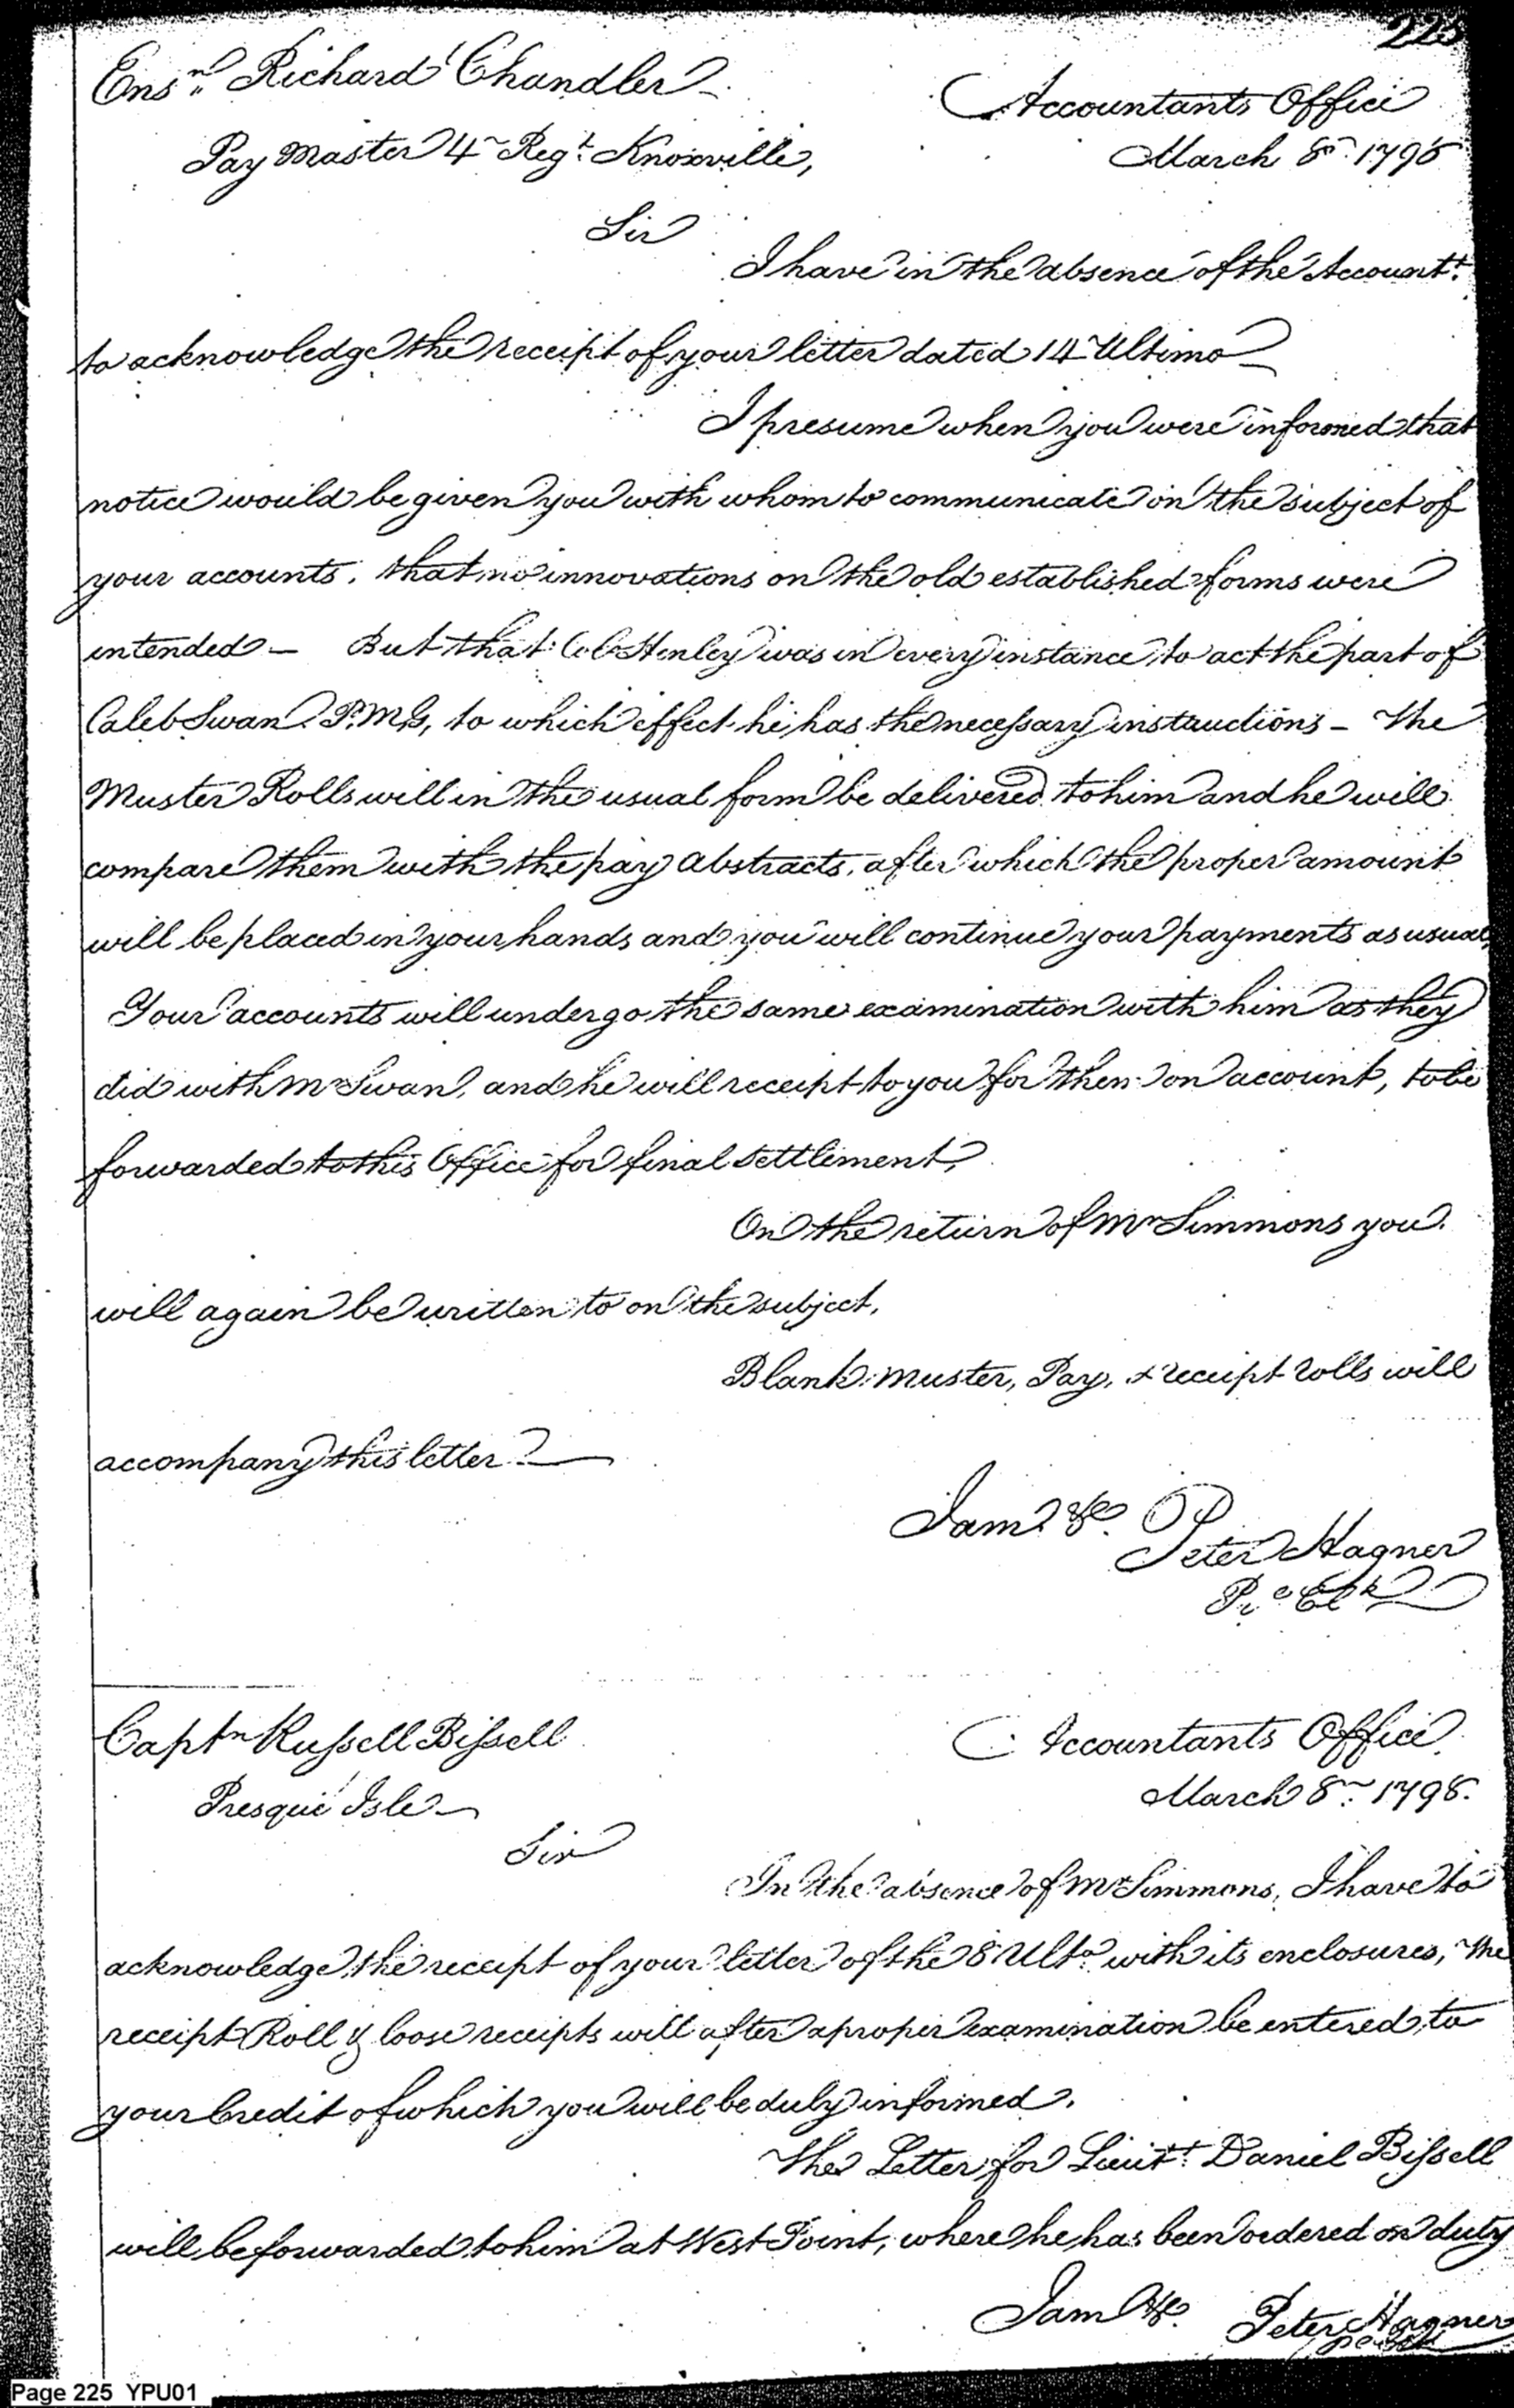 225
Ensn. Richard Chandler
Accountants Office
Pay Master 4 Regt. Knoxville,
March 8th. 1798
Sir
I have in the absence of the Accountt.
to acknowledge the receipt of your letter dated 14 Ultimo
I presume when you were informed that
notice would be given you with whom to communicate on the subject of
your accounts, that no innovations on the old established forms were
intended — But that Col Henley was in every instance to act the part of
Caleb Swan P.M.G, to which effect he has the necessary instructions — The
Muster Rolls will in the usual form be delivered to him and he will
compare them with the pay abstracts, after which the proper amount
will be placed in your hands and you will continue your payments as usual,
Your accounts will undergo the same examination with him as they
did with Mr Swan, and he will receipt to you for them on account, to be
forwarded to this Office for final settlement,
On the return of Mr Simmons you
will again be written to on the subject,
Blank muster, Pay, & receipt rolls will
accompany this letter —
I am &c.
Peter Hagner
Pr. Clk
Captn Russell Bissell
Accountants Office
Presque Isle
March 8th. 1798.
Sir
In the absence of Mr Simmons, I have to
acknowledge the receipt of your letter of the 8 Ulto. with its enclosures, The
receipt Roll & loose receipts will after a proper examination be entered to
your Credit of which you will be duly informed.
The Letter for Lieutt. Daniel Bissell
will be forwarded to him at West Point, where he has been ordered on duty
I am &c.
Peter Hagner
Page 225 YPU01